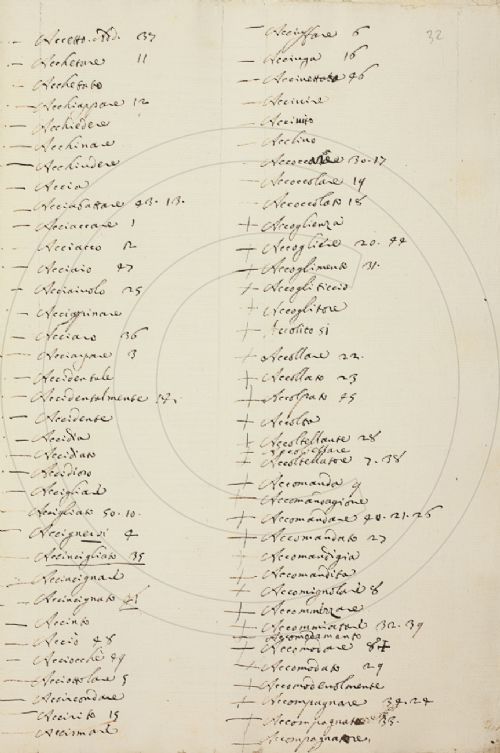 Acchetare 11
Acchetato
Acchiappare 12
Acchiedere
Acchinare
Acchiudere
Accia
Acciabattare 43. 13.
Acciaccare 1
Acciacco 12
Acciaio 47
Acciaiuolo 25
Acciappinare
Acciaro 36
Acciarpare 3
Accidentale
Accidentalmente
Accidente
Accidia
Accidiato
Accidioso
Accigliare
Accigliato 50. 10.
Accignersi 4
Accincigliato 35
Accincignare
Accincignato
Accinto
Acciò 48
Acciocchè 49
Acciottolare 5
Accircondare
Accirito 15
Accismare
32
Acciuffare 6
Acciuga 16
46
Accivire
Accivito
Acclino
30. 17
Accoccolare 14
Accoccolato 18
Accoglienza
Accogliere 20. 44
Accoglimento 31.
Accogliticcio
Accoglitore
Accolito 51
Accollare 22.
Accollato 23
Accolpato 45
Accolta
Accoltellante 28
Accoltellatore 7. 38
Accomanda 9
Accomandagione
Accomandare 40. 21. 26
Accomandato 27
Accomandigia
Accomandita
Accomignolare 8
Accommezzare
Accommiatare 32. 39
Accomodamento
Accomodare
Accomodato 29
Accomodevolmente
Accompagnare 34. 24
33.